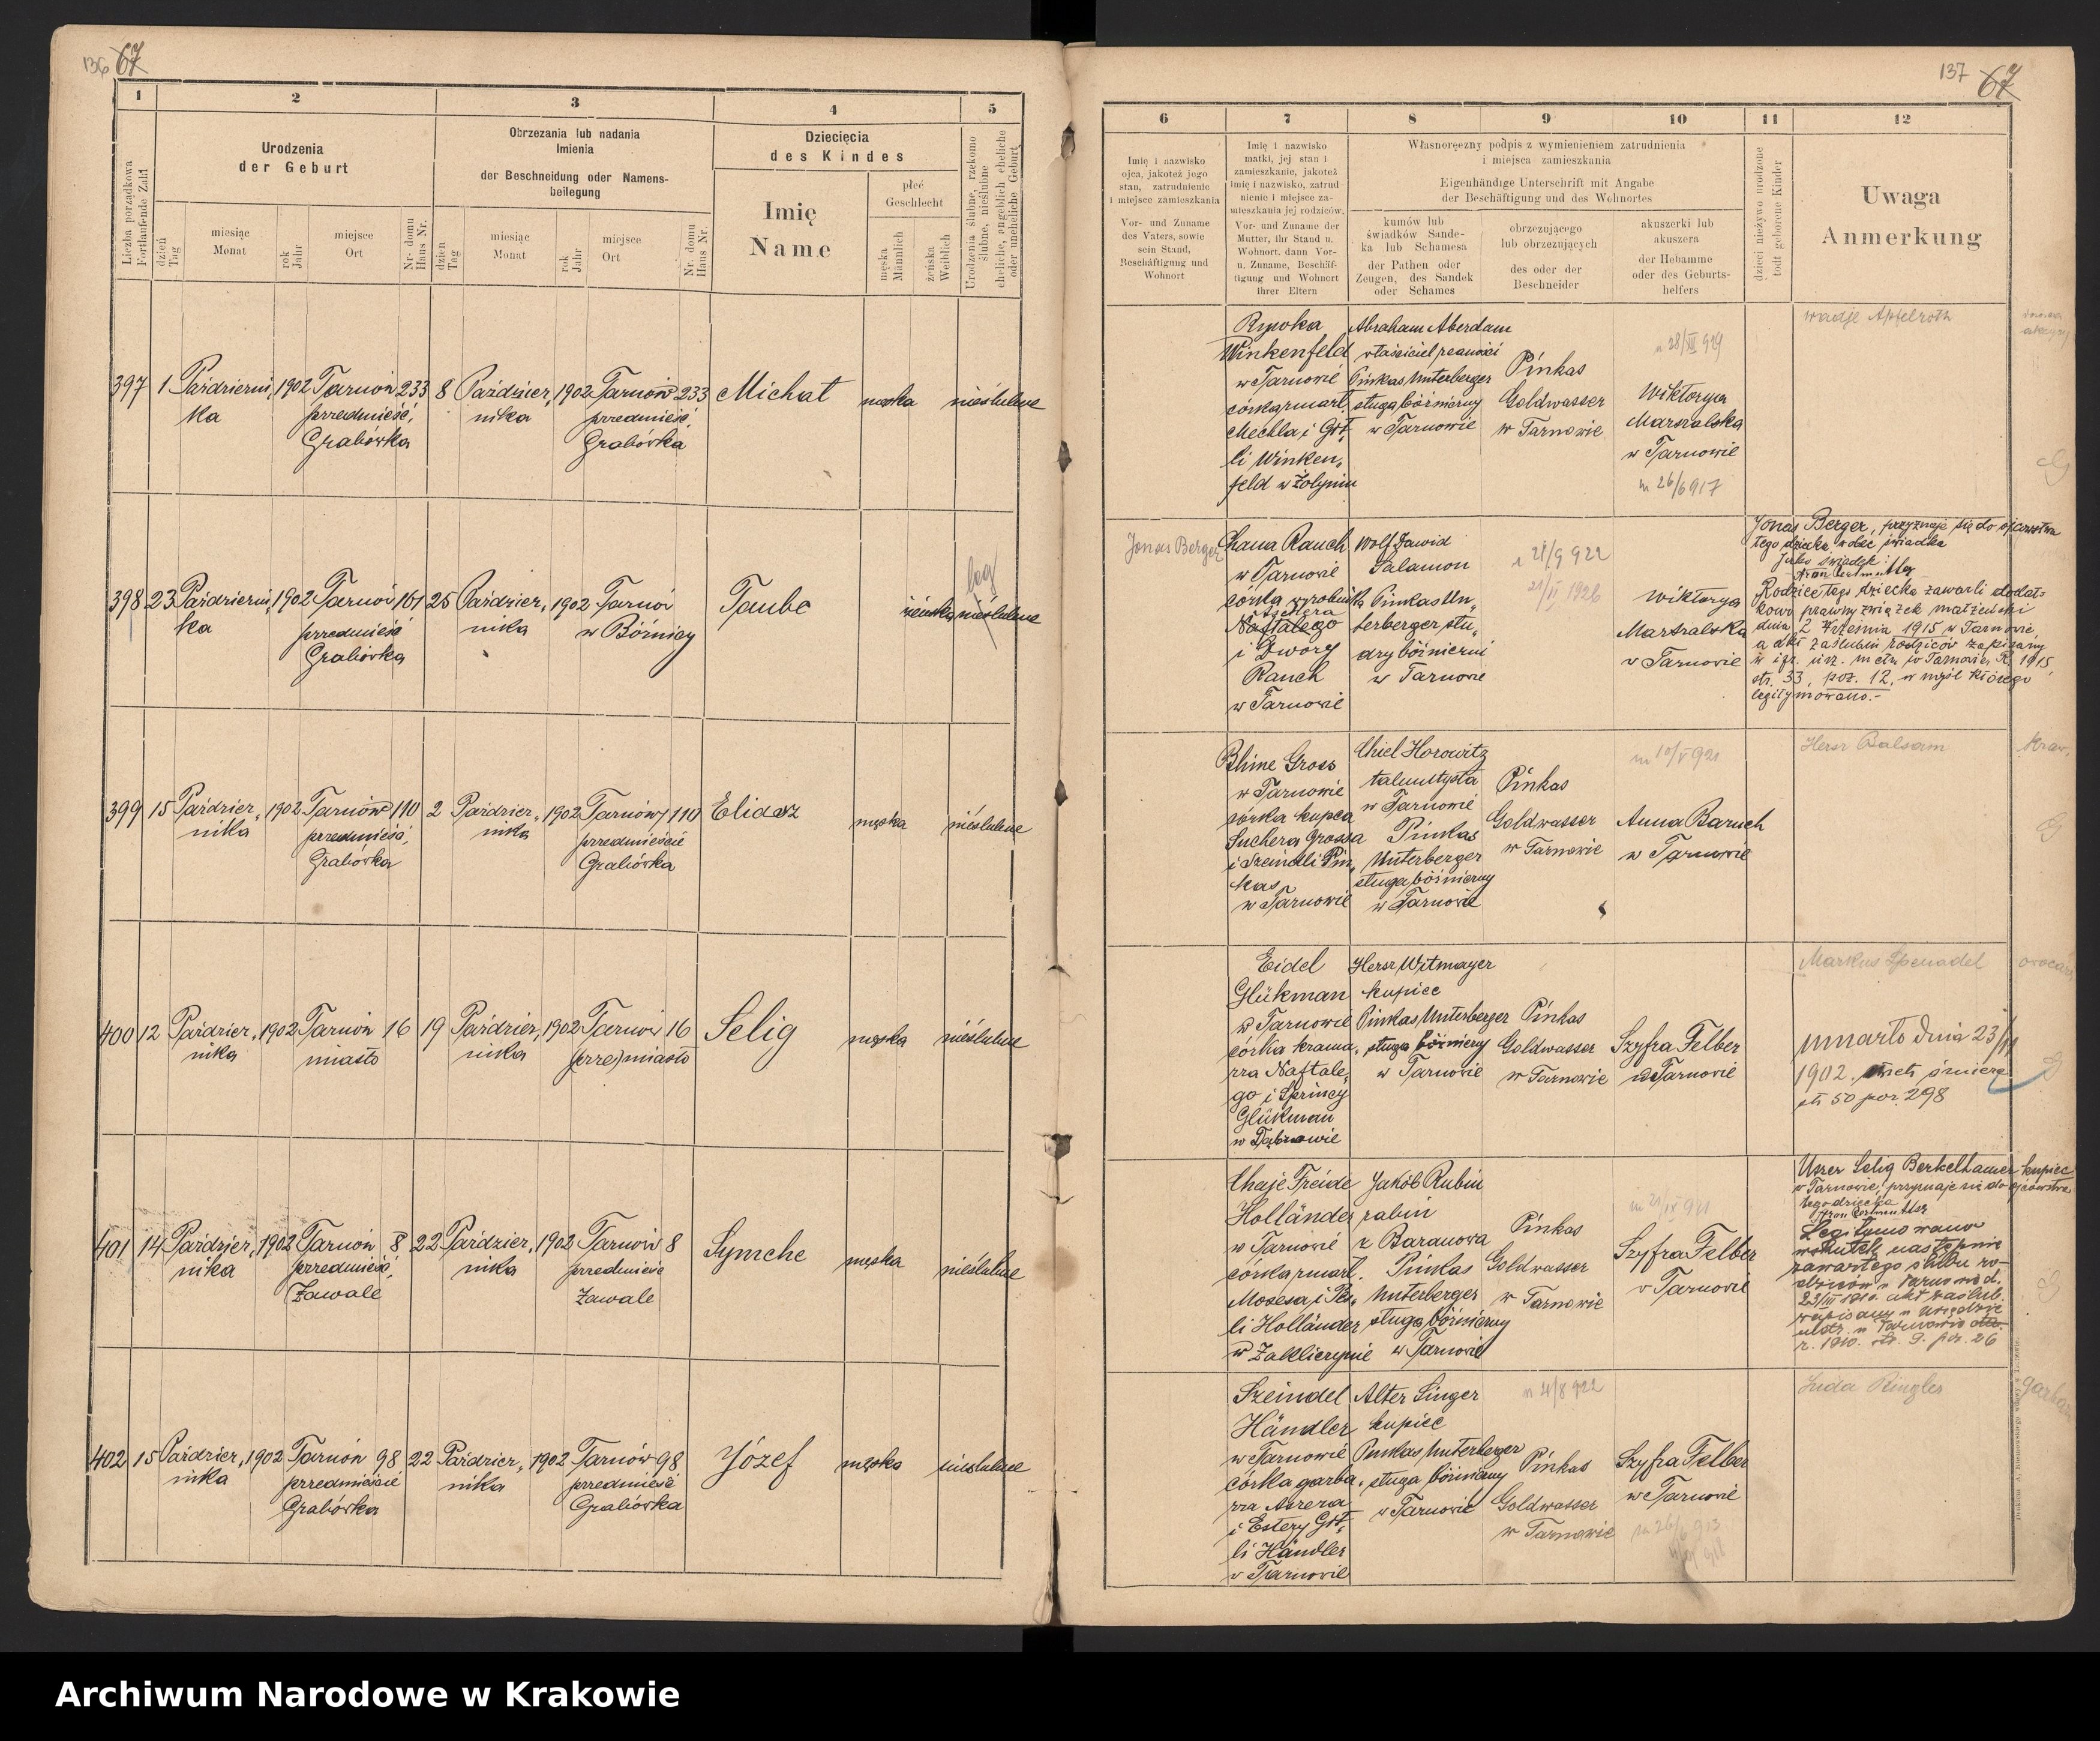 136 67
1
2
3
4
5
Liczba porządkowa
Fortlaufende Zahl
Urodzenia
der Geburt
Obrzezania lub nadania
Imienia
der Beschneidung oder Namens-
beilegung
Dziecięcia
des Kindes
Urodzenia ślubne, rzekomo
ślubne, nieślubne
eheliche, angeblich eheliche
oder uneheliche Geburt
dzień
Tag
miesiąc
Monat
rok
Jahr
miejsce
Ort
Nr. domu
Haus Nr.
dzień
Tag
miesiąc
Monat
rok
Jahr
miejsce
Ort
Nr. domu
Haus Nr.
Imię
Name
płeć
Geschlecht
męska
Männlich
żeńska
Weiblich
397 1 Październi, 1902 Tarnów 233 8 Paździer, 1902 Tarnów 233 Michał męska nieślubne
ka przedmieść, nika przedmieść,
Grabówka Grabówka
398 23 Październi, 1902 Tarnów 161 25 Paździer, 1902 Tarnów Taube żeńska nieślubne
leg
ka przedmieść nika w Bóżnicy
Grabówka
399 15 Paździer, 1902 Tarnów 110 2 Paździer, 1902 Tarnów 110 męska nieślubne
nika przedmieść, nika przedmieście
Grabówka Grabówka
400 12 Paździer, 1902 Tarnów 16 19 Paździer, 1902 Tarnów 16 Selig męska nieślubne
nika miasto nika miasto
401 14 Paździer, 1902 Tarnów 8 22 Paździer, 1902 Tarnów 8 Symche męska nieślubne
nika przedmieść, nika przedmieść
Zawale Zawale
402 15 Paździer, 1902 Tarnów 98 22 Paździer, 1902 Tarnów 98 Józef męska nieślubne
nika przedmieście nika przedmieść
Grabówka Grabówka
137 67
6
7
8
9
10
11
12
Imię i nazwisko
ojca, jakoteż jego
stan, zatrudnienie
i miejsce zamieszkania
Vor- und Zuname
des Vaters, sowie
sein Stand,
Beschäftigung und
Wohnort
Imię i nazwisko
matki, jej stan i
zamieszkanie, jakoteż
imię i nazwisko, zatrud
nienie i miejsce za-
mieszkania jej rodziców.
Vor- und Zuname der
Mutter, ihr Stand u.
Wohnort, dann Vor-
u. Zuname, Beschäf-
tigung und Wohnort
ihrer Eltern
Własnoręczny podpis z wymienieniem zatrudnienia
i miejsca zamieszkania
Eigenhändige Unterschrift mit Angabe
der Beschäftigung und des Wohnortes
kumów lub
świadków Sande-
ka lub Schamesa
der Pathen oder
Zeugen, des Sandek
oder Schames
obrzezującego
lub obrzezujących
des oder der
Beschneider
akuszerki lub
akuszera
der Hebamme
oder des Geburts-
helfers
dzieci nieżywo urodzone
todt geborene Kinder
Uwaga
Anmerkung
Rywka
Winkenfeld
w Tarnowie
córka zmarł.
Mechla i Git,
li Winken,
feld w Żołyni
Abraham Aberdam
właściciel realności
Pinkas Unterberger
sługa bóżniczny
w Tarnowie
Pinkas
Goldwasser
w Tarnowie
28/XII 929
Wiktorya
Marszalska
w Tarnowie
26/6 917
Apfelroth
Jonas Berger
Chana Rauch
w Tarnowie
córka wyrobnika
Aschera
Naftalego
i Dwory
Rauch
w Tarnowie
Wolf Dawid
Salamon
Pinkas Un,
terberger słu,
w Tarnowie
21/9 922
21/II 1926
Wiktorya
Marszalska
w Tarnowie
Jonas Berger, przyznaje się do ojcowstwa
tego dziecka wobec świadka
Jako świadek:
Rodzice tego dziecka zawarli dodat-
kowo prawny związek małżeński
dnia 2 Września 1915 w Tarnowie,
a akt zaślubin rodziców zapisany
w izr. urz. metr. w Tarnowie, R. 1915,
str. 33, poz. 12, w myśl którego
legitymowano.-
Blime Gross
w Tarnowie
córka kupca
Suchera Grossa
i Szeindli Pin,
kas
w Tarnowie
Chiel Horowitz
talmudysta
w Tarnowie
Pinkas
Unterberger
sługa bóżniczny
w Tarnowie
Pinkas
Goldwasser
w Tarnowie
10/V 921
Anna Baruch
w Tarnowie
Hersz Balsam
kraw.
Eidel
Glükman
w Tarnowie
córka krama,
rza Naftale,
go i Sprincy
Glükman
w Dąbrowie
Hersz Witmayer
kupiec
Pinkas Unterberger
sługa bóżniczny
w Tarnowie
Pinkas
Goldwasser
w Tarnowie
Szyfra Felber
w Tarnowie
Markus Spenadel
umarło dnia 23/11
1902.
str 50 poz. 298
Chaje Freide
Holländer
w Tarnowie
córka zmarł.
Mosesa i Pes,
li Holländer
w Zakliczynie
Jakób Rubin
rabin
z Baranowa
Pinkas
Unterberger
sługa bóżniczny
w Tarnowie
Pinkas
Goldwasser
w Tarnowie
Szyfra Felber
w Tarnowie
Uszer Selig Berkelhamer kupiec
w Tarnowie, przyznaje się do ojcowstwa
tego dziecka
Legitymowano
wskutek następnie
zawartego ślubu ro-
dziców w Tarnowie d.
23/III 1910. akt zaślub.
zapisany w Urzędzie
metr. w Tarnowie
r. 1910. str. 9. poz. 26
Szeindel
Händler
w Tarnowie
córka garba,
rza Aszera
i Estery Git,
li Händler
w Tarnowie
Alter Singer
kupiec
Pinkas Unterberger
sługa bóżniczny
w Tarnowie
4/8 922
Pinkas
Goldwasser
w Tarnowie
Szyfra Felber
w Tarnowie
Juda Ringler
garbarz
Archiwum Narodowe w Krakowie